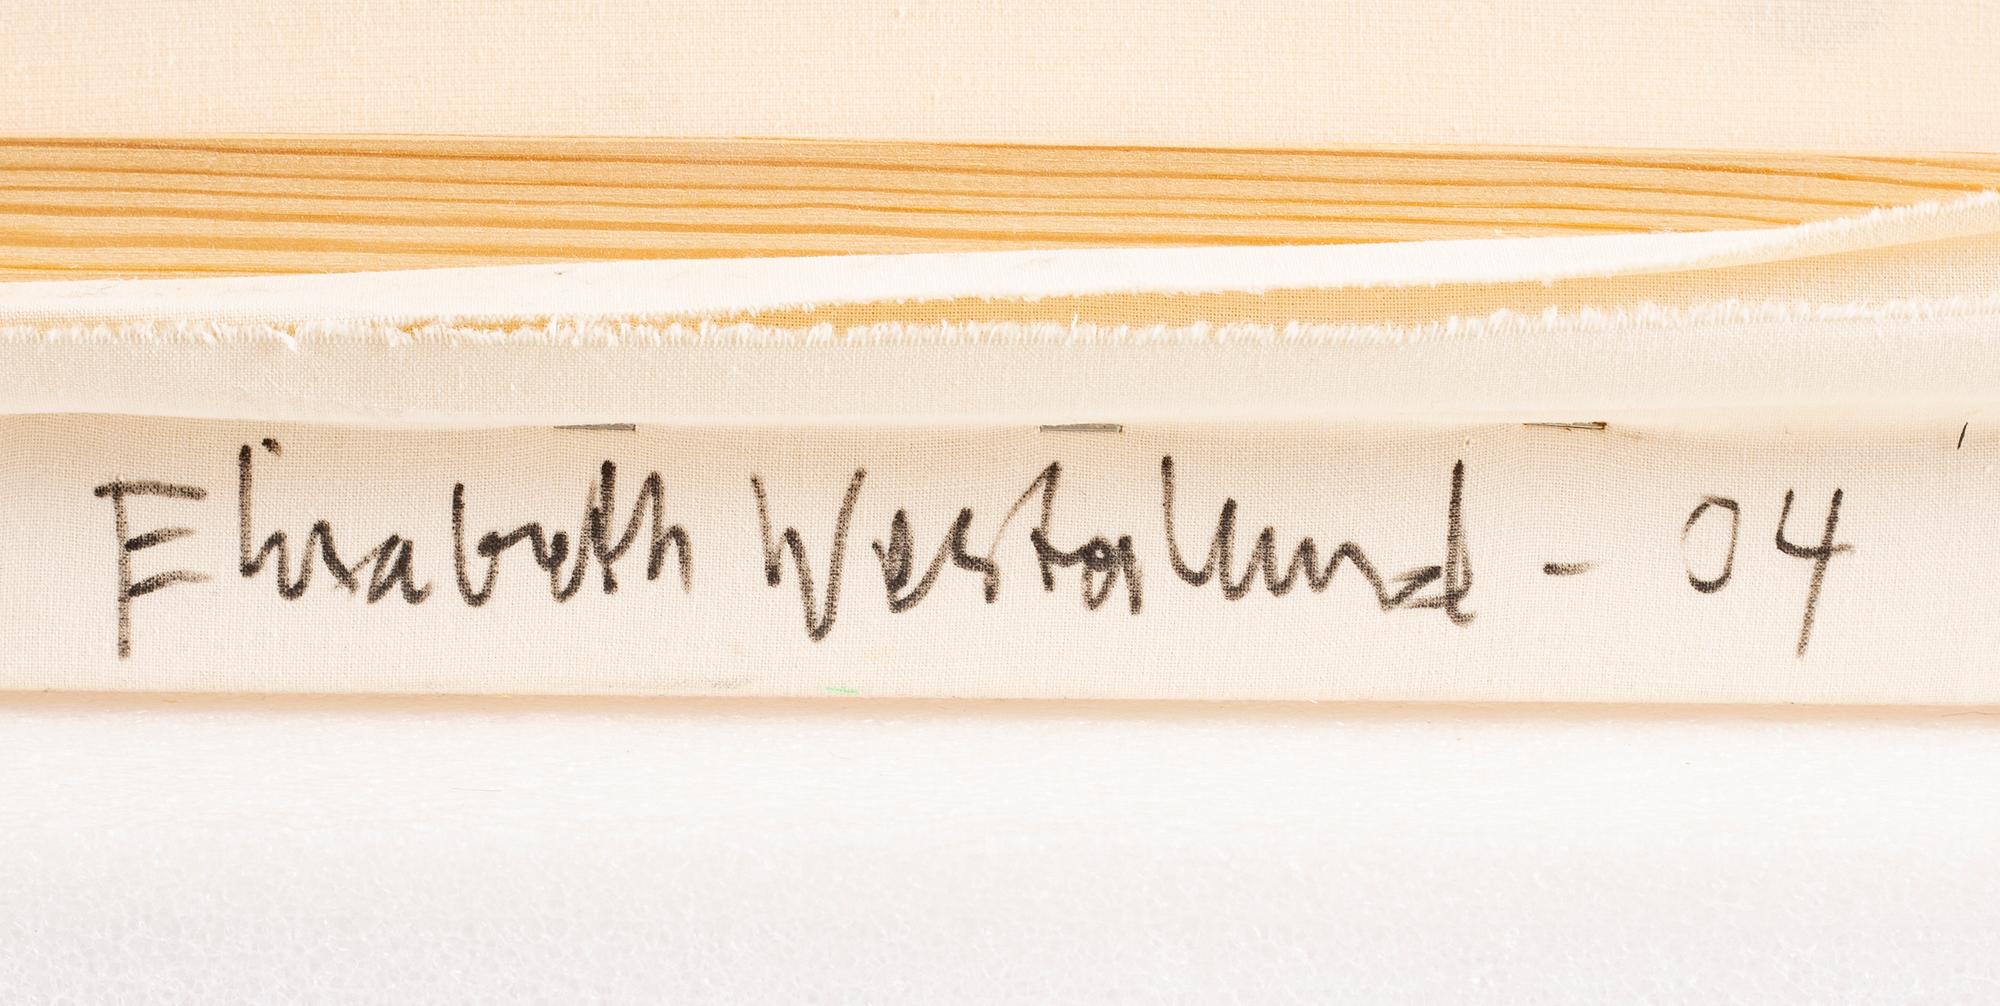 Elisabeth Westerlund - 04